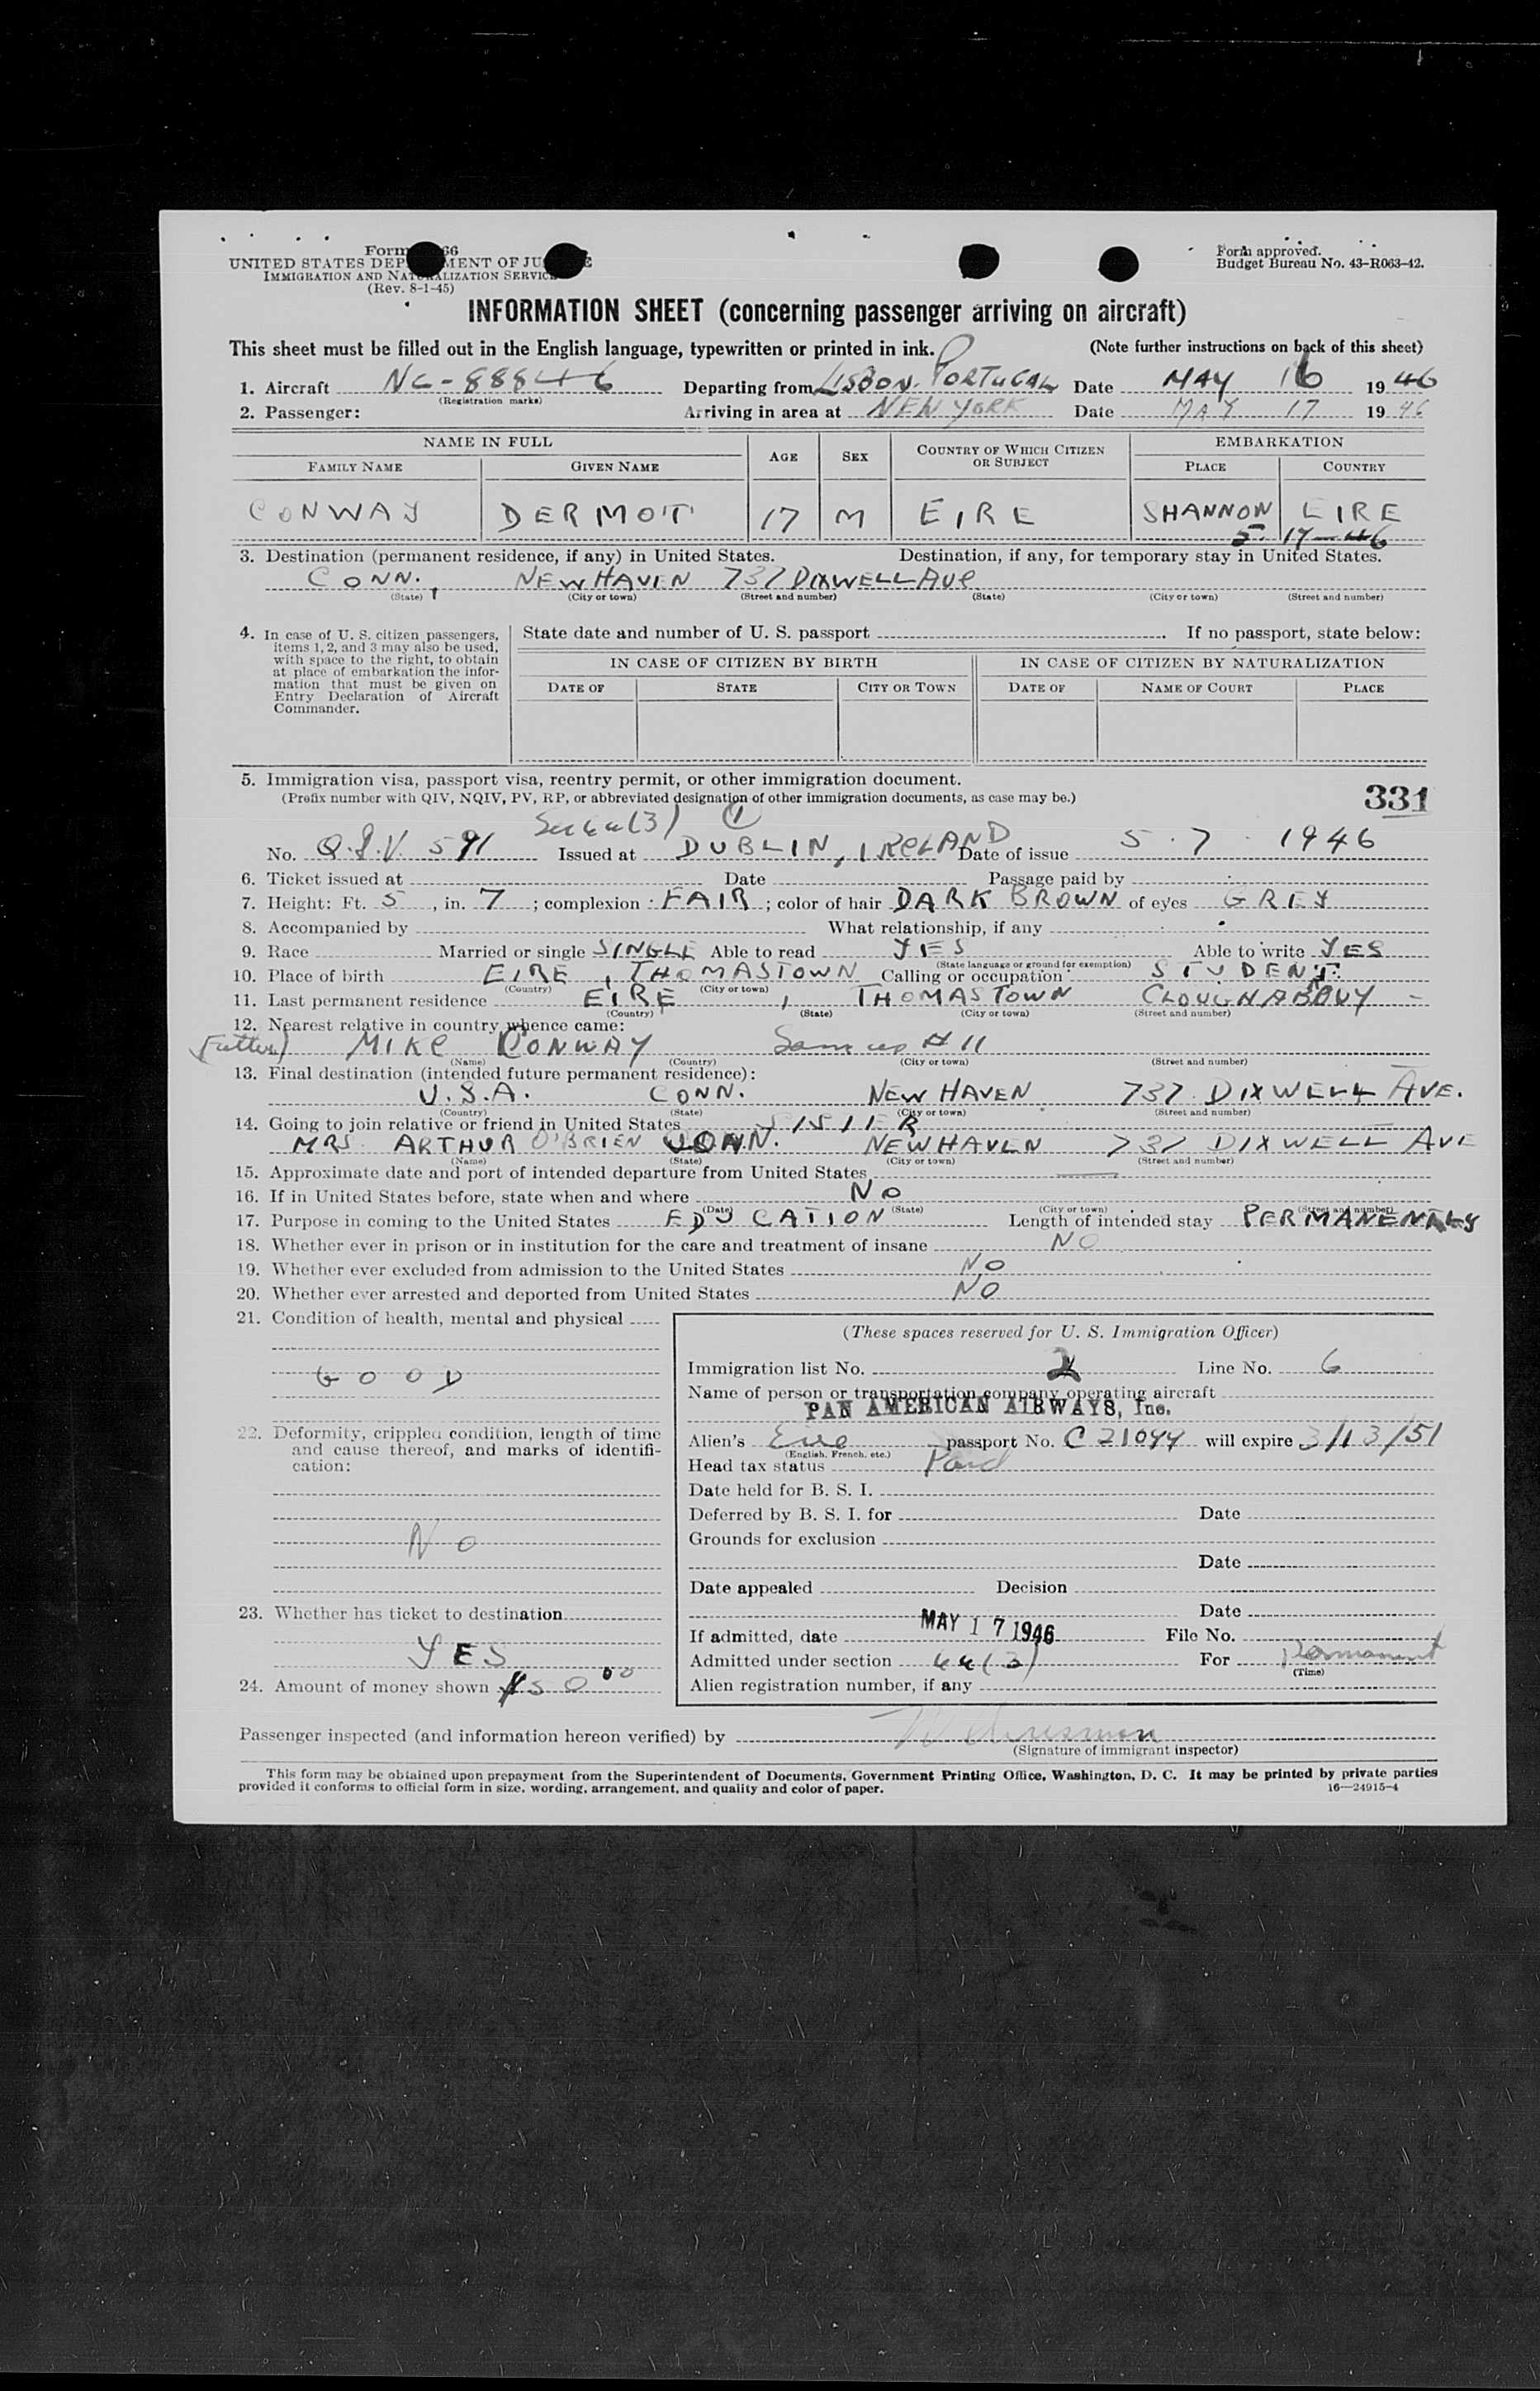 UNITED STATES DEPARTMENT OF JUSTICE
IMMIGRATION AND NATURALIZATION SERVICE
(Rev. 8-1-45)
Form approved.
Budget Bureau No. 43-R063-42.
INFORMATION SHEET (concerning passenger arriving on aircraft)
This sheet must be filled out in the English language, typewritten or printed in ink. (Note further instructions on back of this sheet)
1. Aircraft NC-88846 Departing from LISBON. PORTUGAL Date MAY 16 1946
(Registration marks)
2. Passenger: Arriving in area at NEW YORK Date MAY 17 1946
NAME IN FULL AGE SEX COUNTRY OF WHICH CITIZEN OR SUBJECT EMBARKATION
FAMILY NAME GIVEN NAME PLACE COUNTRY
CONWAY DERMOT 17 M EIRE SHANNON EIRE
5. 17-46
3. Destination (permanent residence, if any) in United States. Destination, if any, for temporary stay in United States.
CONN., NEW HAVEN 737 DIXWELL AVE
(State) (City or town) (Street and number) (State) (City or town) (Street and number)
4. In case of U. S. citizen passengers, items 1, 2, and 3 may also be used, with space to the right, to obtain at place of embarkation the information that must be given on Entry Declaration of Aircraft Commander.
State date and number of U. S. passport . If no passport, state below:
IN CASE OF CITIZEN BY BIRTH IN CASE OF CITIZEN BY NATURALIZATION
DATE OF STATE CITY OR TOWN DATE OF NAME OF COURT PLACE
5. Immigration visa, passport visa, reentry permit, or other immigration document.
(Prefix number with QIV, NQIV, PV, RP, or abbreviated designation of other immigration documents, as case may be.)
331
No. Q.I.V. 591 Issued at DUBLIN, IRELAND Date of issue 5.7.1946
6. Ticket issued at Date Passage paid by
7. Height: Ft. 5, in. 7; complexion FAIR; color of hair DARK BROWN of eyes GREY
8. Accompanied by What relationship, if any
9. Race Married or single SINGLE Able to read YES Able to write YES
(State language or ground for exemption)
10. Place of birth EIRE, THOMASTOWN Calling or occupation STUDENT.
(Country) (City or town)
11. Last permanent residence EIRE, THOMASTOWN
(Country) (State) (City or town) (Street and number)
12. Nearest relative in country whence came:
(Father) MIKE CONWAY Same as # 11
(Name) (Country) (City or town) (Street and number)
13. Final destination (intended future permanent residence):
U.S.A. CONN. NEW HAVEN 737 DIXWELL AVE.
(Country) (State) (City or town) (Street and number)
14. Going to join relative or friend in United States SISTER
MRS. ARTHUR O'BRIEN CONN. NEW HAVEN 737 DIXWELL AVE
(Name) (State) (City or town) (Street and number)
15. Approximate date and port of intended departure from United States
16. If in United States before, state when and where NO
(Date) (State) (City or town) (Street and number)
17. Purpose in coming to the United States EDUCATION Length of intended stay PERMANENTLY
18. Whether ever in prison or in institution for the care and treatment of insane NO
19. Whether ever excluded from admission to the United States NO
20. Whether ever arrested and deported from United States NO
21. Condition of health, mental and physical
GOOD
22. Deformity, crippled condition, length of time and cause thereof, and marks of identification:
NO
23. Whether has ticket to destination
YES
24. Amount of money shown $50 00
(These spaces reserved for U. S. Immigration Officer)
Immigration list No. 2 Line No. 6
Name of person or transportation company operating aircraft
PAN AMERICAN AIRWAYS, Inc.
Alien's Eire passport No. C 21044 will expire 3/13/51
(English, French, etc.)
Head tax status Paid
Date held for B. S. I.
Deferred by B. S. I. for Date
Grounds for exclusion
Date
Date appealed Decision
Date
If admitted, date MAY 17 1946 File No.
Admitted under section 4a(3) For Permanent
(Time)
Alien registration number, if any
Passenger inspected (and information hereon verified) by
(Signature of immigrant inspector)
This form may be obtained upon prepayment from the Superintendent of Documents, Government Printing Office, Washington, D. C. It may be printed by private parties
provided it conforms to official form in size, wording, arrangement, and quality and color of paper. 16—24915-4